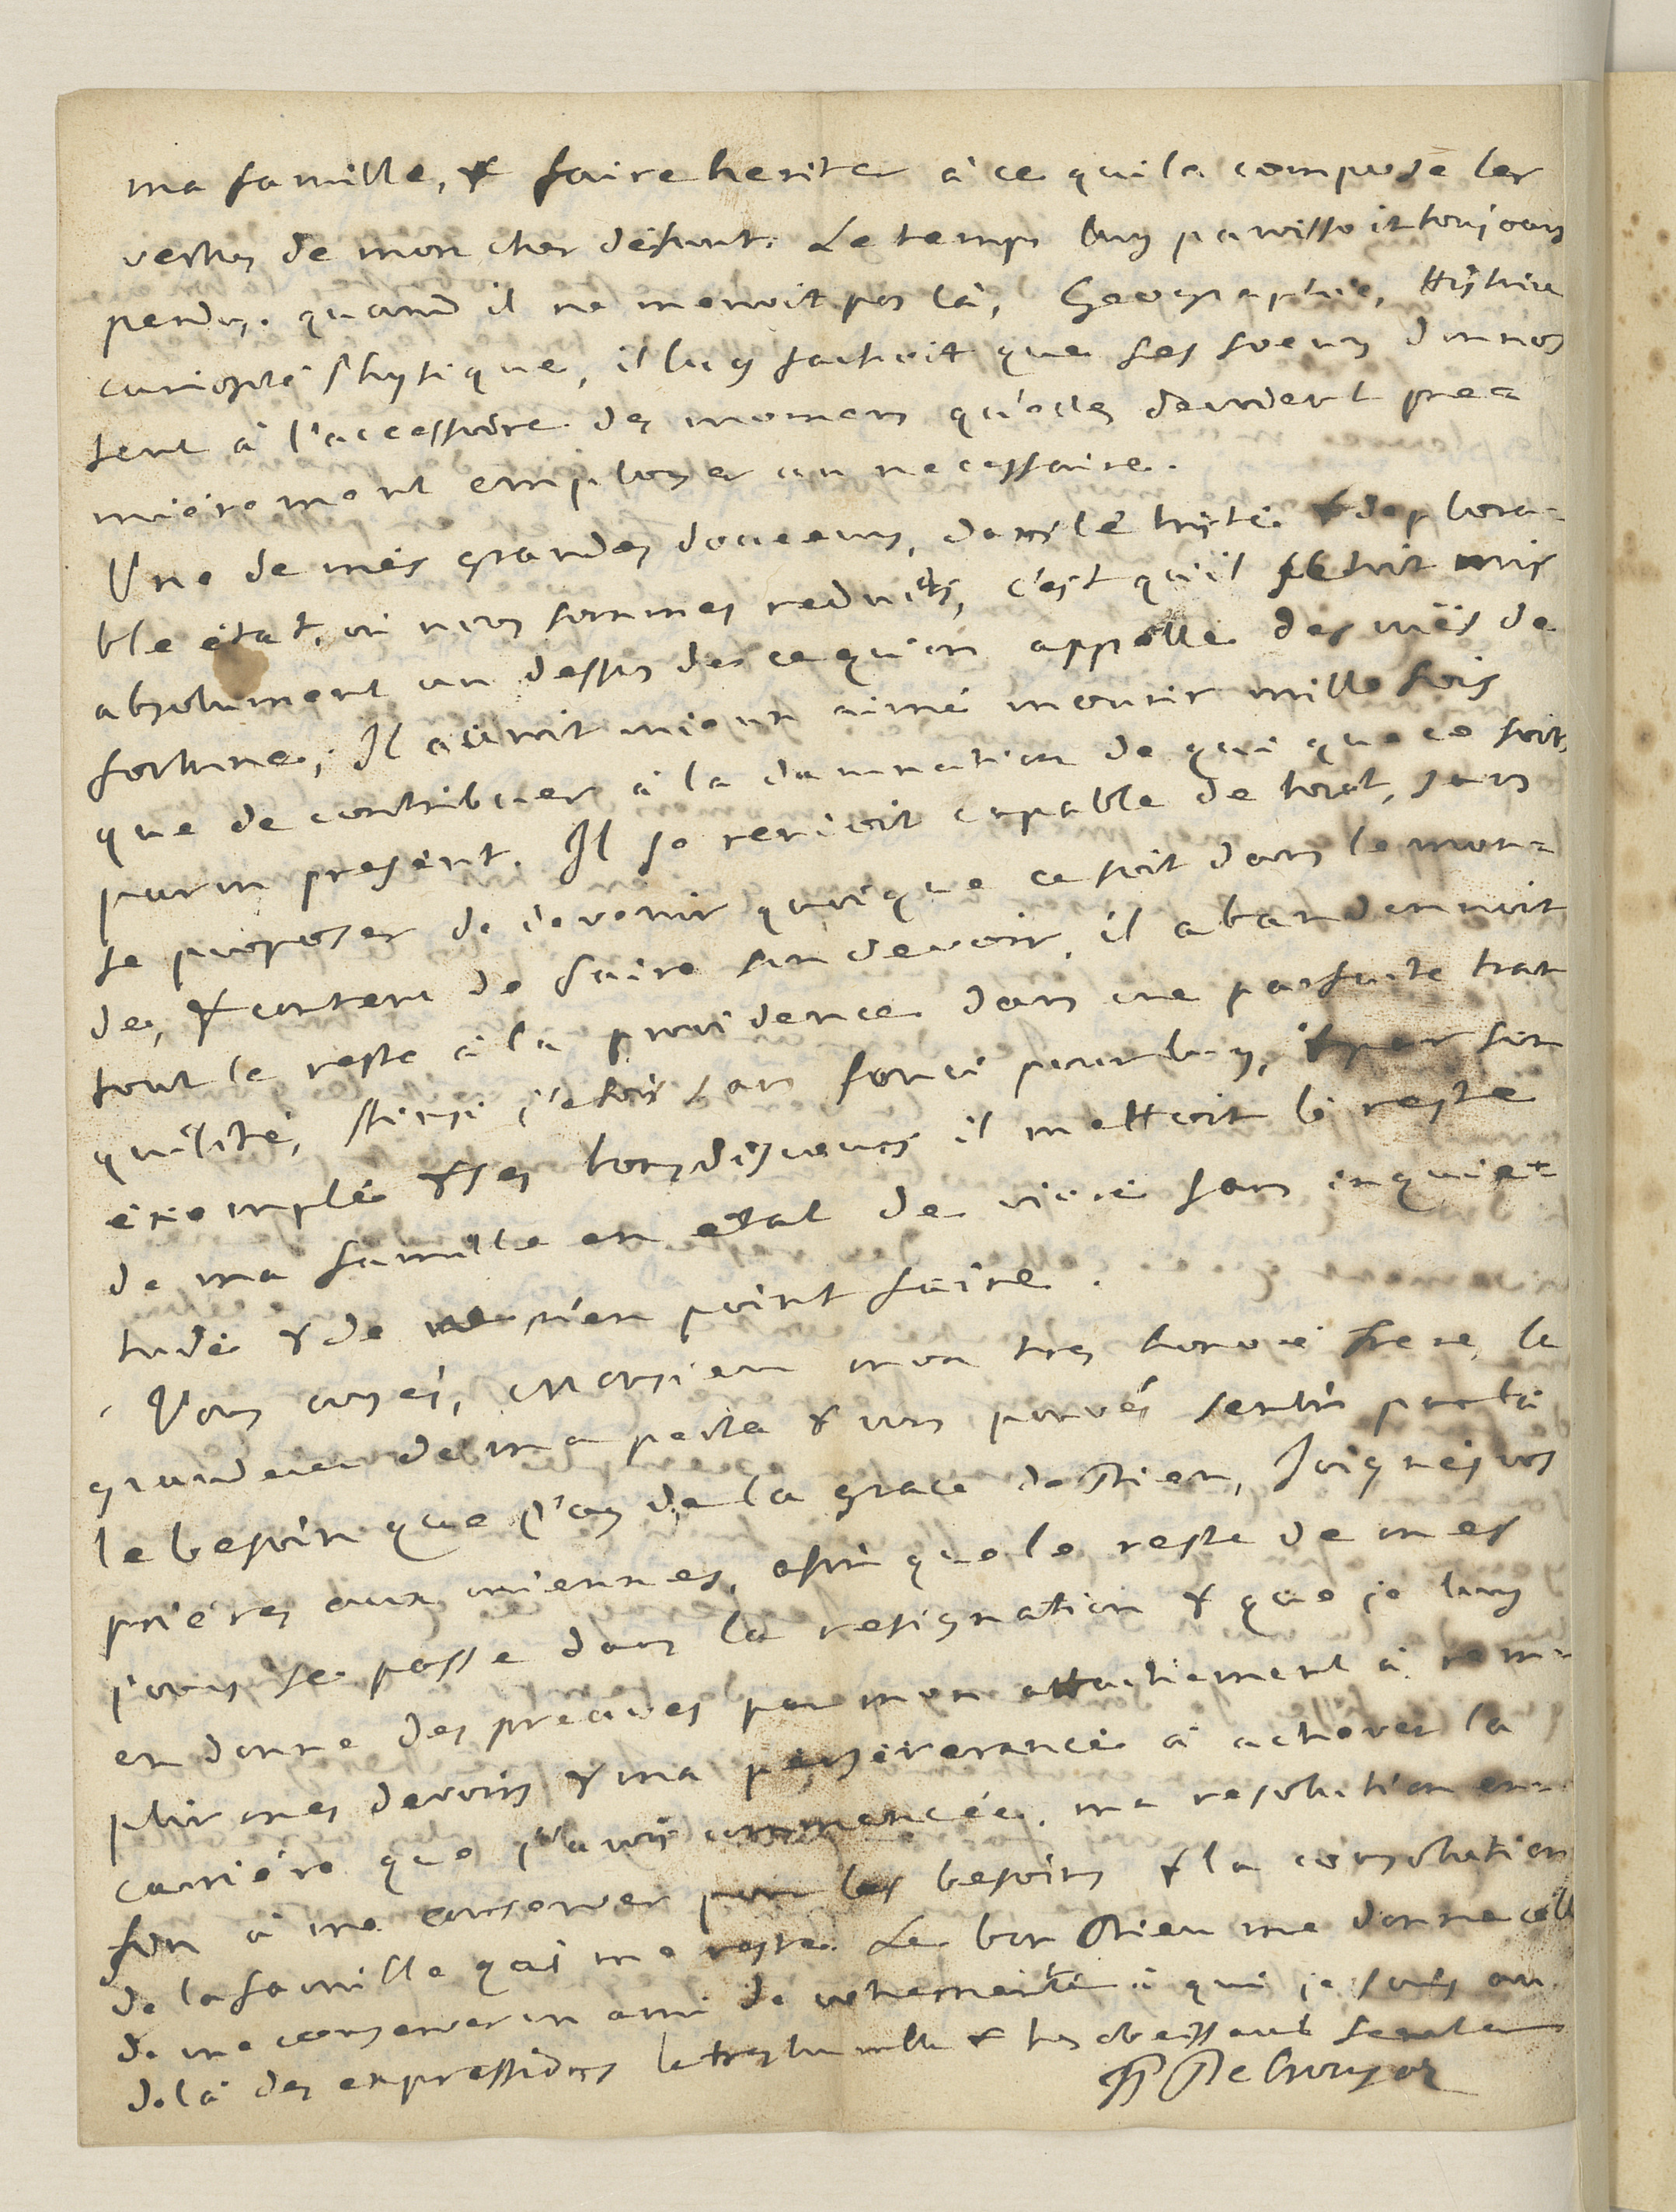 ma famille, & faire heriter à ce qui la compose les
vertus de mon cher défunt. Le temps luy paroissoit toujours
perdu, quand il ne menoit pas là, Geographie, Histoire
curiosité Physique, il luy fachoit que ses soeurs donnas
sent à l'accessoire des momens qu'elles devroient pre=
mierement employer au necessaire.
Une de mes grandes douceurs, dans le triste & deplora-
ble état, où nous sommes reduits, c'est qu'il s'etoit mis
absolument au dessus de ce qu'on appelle des vües de
fortune, Il auroit mieux aimé mourir mille fois
que de contribuer à la damnation de qui que ce soit,
par un present. Il se rendoit capable de tout, sans
se proposer de devenir quoique ce soit dans le mon=
de, & content de faire son devoir, il abandonnoit
tout le reste à la providence dans une parfaite tran
quilité, Ainsi j'etois sans souci pour luy, & par son
exemple & ses bons discours il mettoit le reste
de ma famille en etat de vivre sans inquie=
tude & de ne m'en point faire.
Vous voyés, Monsieur mon tres honoré frere, la
grandeur de ma perte & vous pouvés sentir par là
le besoin que j'ay de la grace de Dieu, Joignés vos
priéres aux miennes, afin que le reste de mes
jours se passe dans la resignation & que je luy
en donne des preuves par mon attachement à rem-
plir mes devoirs & ma perseverance à achever la
carriére que j'avois commencée, ma resolution en-
fin à me conserver pour les besoins & la consolation
de la famille qui me reste. Le bon Dieu me donne celle
de me conserver un ami de vôtre merite à qui je suis au
delà des expressions le tres humble & tres obeissant serviteur
De Crousaz